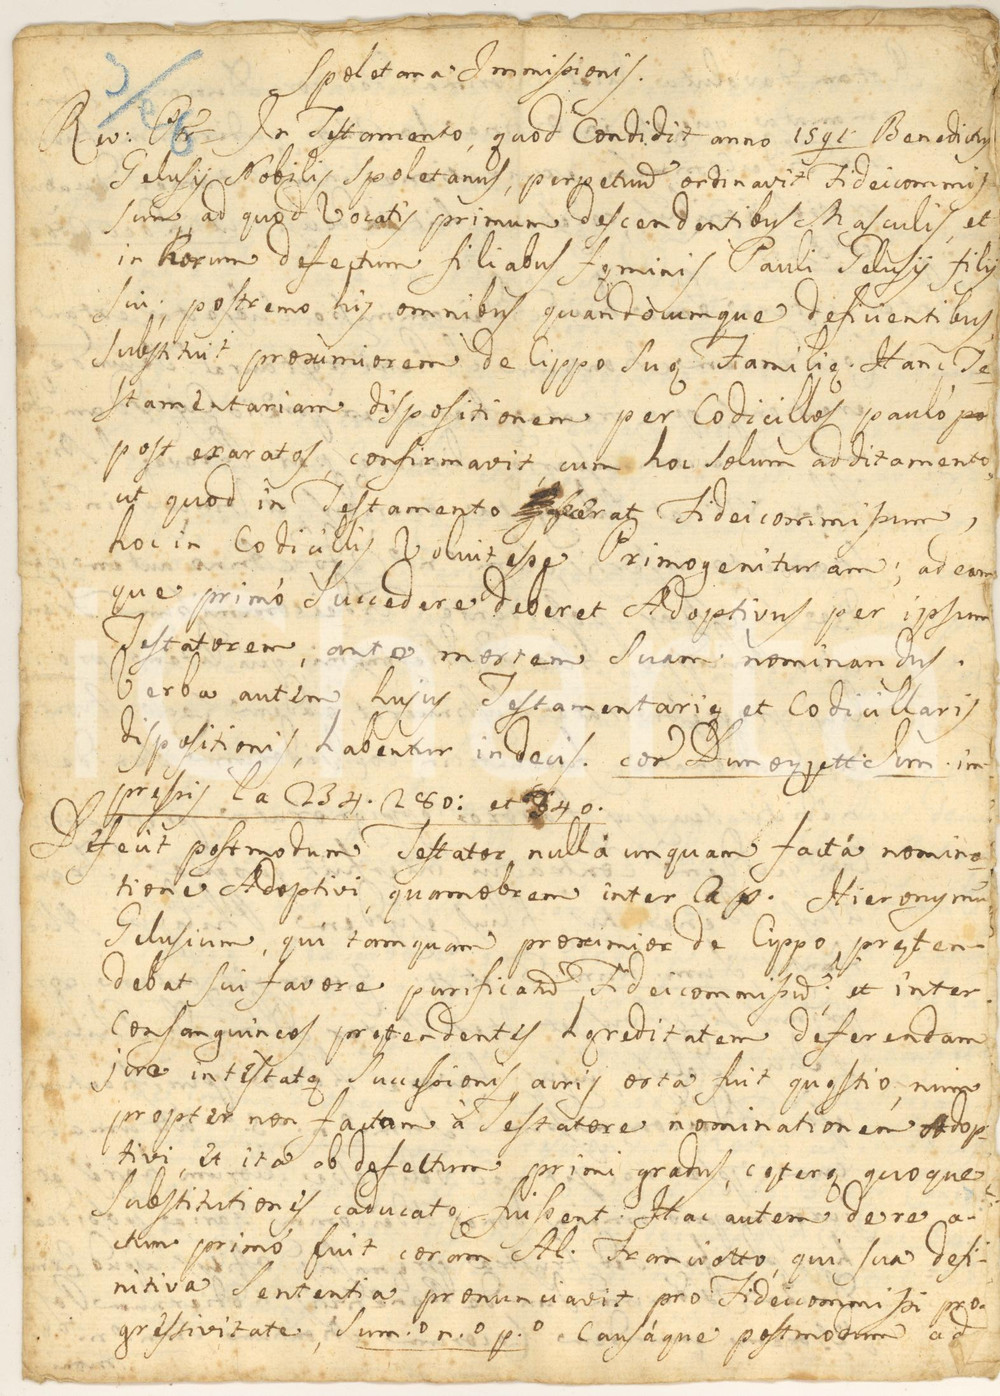 Spoletana Immissionis.
Rev: Pr In Testamento, quod Condidit anno 1591 Benedictus
Gelusij Nobilis Spoletanus, perpetuũ ordinavit Fideicommis
sum, ad quod Vocatis primum descendentibus Masculis, et
in horum defectum filiabus fęminis Pauli Gelusij filij
sui; postremo his omnibus quandocumque deficientibus
substituit proximiorem de Cippo suę Familię. Hanc Te-
stamentariam dispositionem per Codicillos pauló
post exaratos, confirmavit, cum hoc solum additamento
ut quod in Testamento fuerat Fideicommissum,
hoc in Codicillis Voluit esse Primogenituram; ad eam
que primó succedere deberet Adoptivus per ipsum
Testatorem, ante mortem suam nominandus.
Verba autem hujus Testamentarię et Codicillaris
dispositionis, habentur in decis. cor̃ Dunozzett Sum. im-
pressis la 234. 280: et 840.
Defecit postmodum Testator nullá unquam factá nomina-
tione Adoptivi, quamobrem inter Cap. Hieronymũ
Gelusium, qui tamquam proximior de Cippo, pręten-
debat sui favore purificatũ Fideicommissũ; et inter
Consanguineos prętendentes hęreditatem deferendam
jure intestatę Successionis, acris orta fuit quęstio, num
propter non factam à Testatore nominationem Adop-
tivi, et ita ob defectum primi gradus, cęterę quoque
substitutiones caducatę fuissent. Hac autem de re a-
ctum primó fuit coram Al. Franciotto, qui sua defi-
nitiva Sententia pronunciavit pro Fideicommissi pro-
gressivitate, Sum.º n.º p.º. Causáque postmodum ad